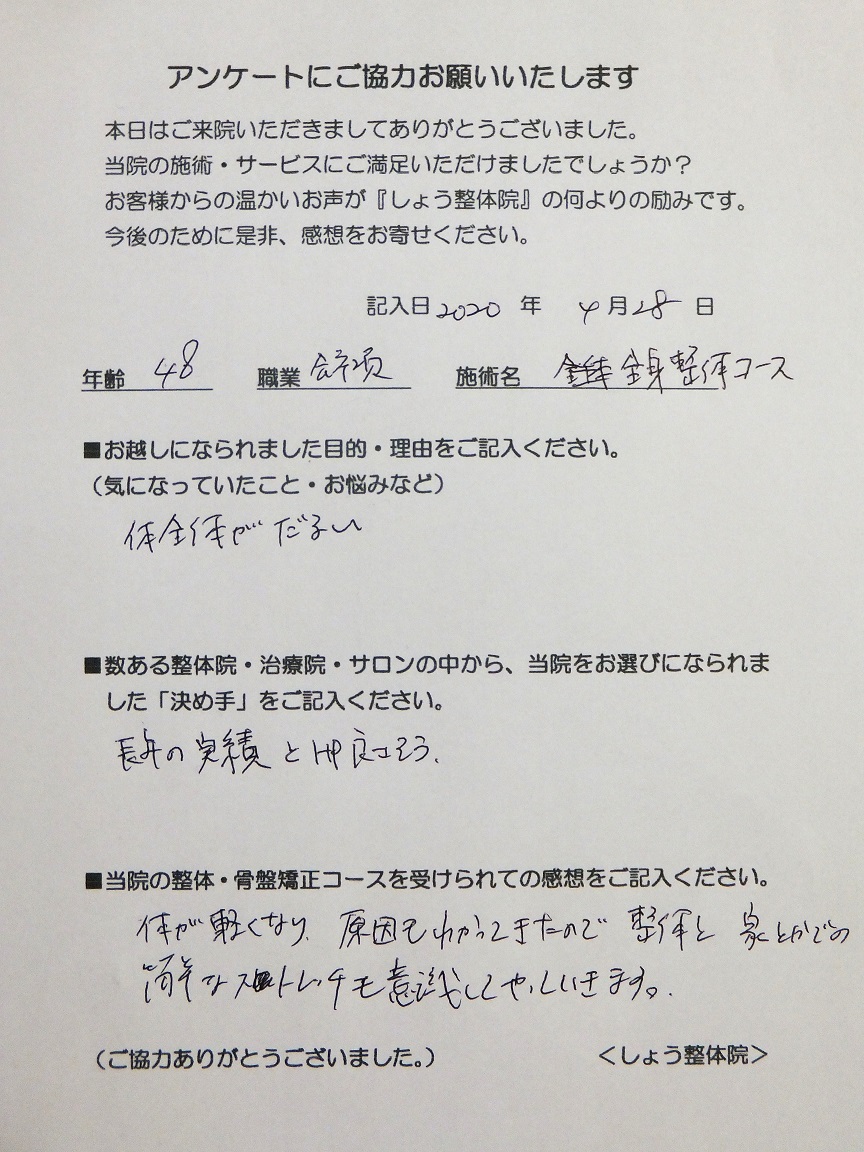 アンケートにご協力お願いいたします
本日はご来院いただきましてありがとうございました。
当院の施術・サービスにご満足いただけましたでしょうか？
お客様からの温かいお声が『しょう整体院』の何よりの励みです。
今後のために是非、感想をお寄せください。
記入日 2020 年 4月28日
年齢 48 職業 施術名 全身整体コース
■お越しになられました目的・理由をご記入ください。
（気になっていたこと・お悩みなど）
体全体がだるい
■数ある整体院・治療院・サロンの中から、当院をお選びになられま
した「決め手」をご記入ください。
長年の実績とHP良さそう.
■当院の整体・骨盤矯正コースを受けられての感想をご記入ください。
体が軽くなり、原因もわかってきたので 整体と 家とかでの
簡単なストレッチも意識してやっていきます。
（ご協力ありがとうございました。） ＜しょう整体院＞